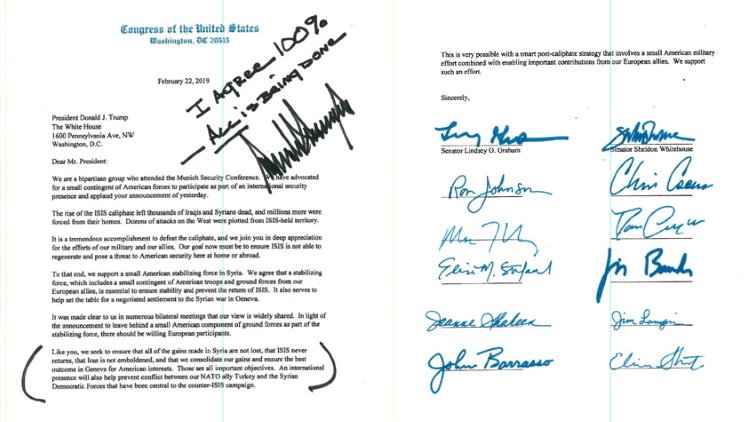 Congress of the United States
Washington, DC 20515
February 22, 2019
I AGREE 100%
ALL IS BEING DONE
President Donald J. Trump
The White House
1600 Pennsylvania Ave, NW
Washington, D.C.
Dear Mr. President:
We are a bipartisan group who attended the Munich Security Conference. We have advocated
for a small contingent of American forces to participate as part of an international security
presence and applaud your announcement of yesterday.
The rise of the ISIS caliphate left thousands of Iraqis and Syrians dead, and millions more were
forced from their homes. Dozens of attacks on the West were plotted from ISIS-held territory.
It is a tremendous accomplishment to defeat the caliphate, and we join you in deep appreciation
for the efforts of our military and our allies. Our goal now must be to ensure ISIS is not able to
regenerate and pose a threat to American security here at home or abroad.
To that end, we support a small American stabilizing force in Syria. We agree that a stabilizing
force, which includes a small contingent of American troops and ground forces from our
European allies, is essential to ensure stability and prevent the return of ISIS. It also serves to
help set the table for a negotiated settlement to the Syrian war in Geneva.
It was made clear to us in numerous bilateral meetings that our view is widely shared. In light of
the announcement to leave behind a small American component of ground forces as part of the
stabilizing force, there should be willing European participants.
Like you, we seek to ensure that all of the gains made in Syria are not lost, that ISIS never
returns, that Iran is not emboldened, and that we consolidate our gains and ensure the best
outcome in Geneva for American interests. Those are all important objectives. An international
presence will also help prevent conflict between our NATO ally Turkey and the Syrian
Democratic Forces that have been central to the counter-ISIS campaign.
This is very possible with a smart post-caliphate strategy that involves a small American military
effort combined with enabling important contributions from our European allies. We support
such an effort.
Sincerely,
Senator Lindsey O. Graham
Senator Sheldon Whitehouse
Ron Johnson
Chris Coons
Jeanne Shaheen
Jim Langevin
John Barrasso